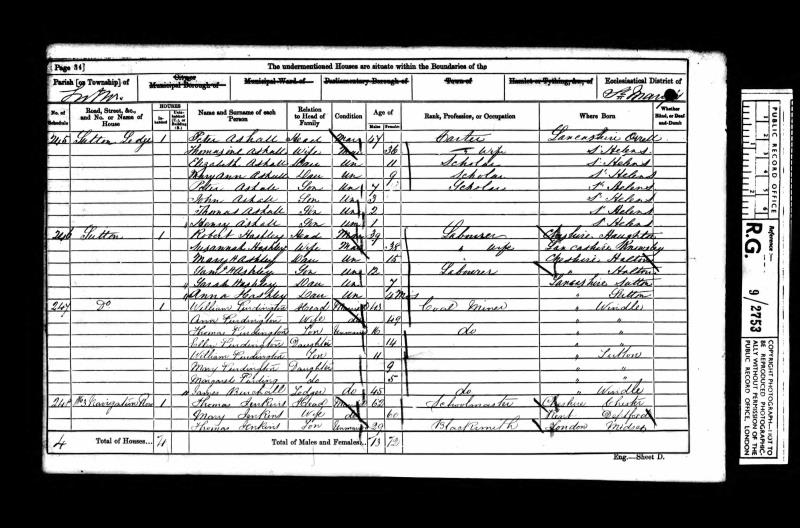 Page 34]
The undermentioned Houses are situate within the Boundaries of the
Parish [or Township] of
City or
Municipal Borough of
Municipal Ward of
Parliamentary Borough of
Town of
Hamlet or Tything, &c., of
Ecclesiastical District of
Sutton
No. of Schedule
Road, Street, &c., and No. or Name of House
HOUSES
Inhabited
Uninhabited (U.), or Building (B.)
Name and Surname of each Person
Relation to Head of Family
Condition
Age of
Males Females
Rank, Profession, or Occupation
Where Born
Whether Blind, or Deaf-and-Dumb
245 Sutton Lodge 1 Peter Ashall Head Mar 47 Carter Lancashire
Ashall Wife Mar 36 Wife St Helens
Elizabeth Ashall Dau Un 11 Scholar St Helens
Mary Ann Ashall Dau Un 9 Scholar St Helens
Peter Ashall Son Un 7 Scholar St Helens
John Ashall Son Un 3 St Helens
Thomas Ashall Son Un 2 St Helens
Henry Ashall Son Un 1 St Helens
246 Sutton 1 Robert Hashley Head Mar 39 Labourer Cheshire Haughton
Susannah Hashley Wife Mar 38 " Wife Lancashire
Mary Hashley Dau Un 15 Cheshire Halton
Saml Hashley Son Un 12 Labourer " Halton
Sarah Hashley Dau Un 7 Lancashire Sutton
Anna Hashley Dau Un 4 Mos " Sutton
247 Do 1 William Purdington Head Married 43 Coal Miner " Windle
Ann Purdington Wife do 49 " "
Thomas Purdington Son Unmarried 16 do " "
Ellen Purdington Daughter 14 " "
William Purdington Son 11 " Sutton
Mary Purdington Daughter 9 " "
Margaret Purding do 5 " "
James Birchall Lodger do 45 do " Windle
248 No 3 Navigation Row 1 Thomas Jenkins Head Married 62 Schoolmaster Cheshire Chester
Mary Jenkins Wife do 60 Kent Deptford
Thomas Jenkins Son Unmarried 29 Blacksmith London Midsex
4 Total of Houses... 4 Total of Males and Females... 13 12
Eng.—Sheet D.
PUBLIC RECORD OFFICE
Reference:-
R.G. 9/2753
COPYRIGHT PHOTOGRAPH—NOT TO BE REPRODUCED PHOTOGRAPHICALLY WITHOUT PERMISSION OF THE PUBLIC RECORD OFFICE, LONDON